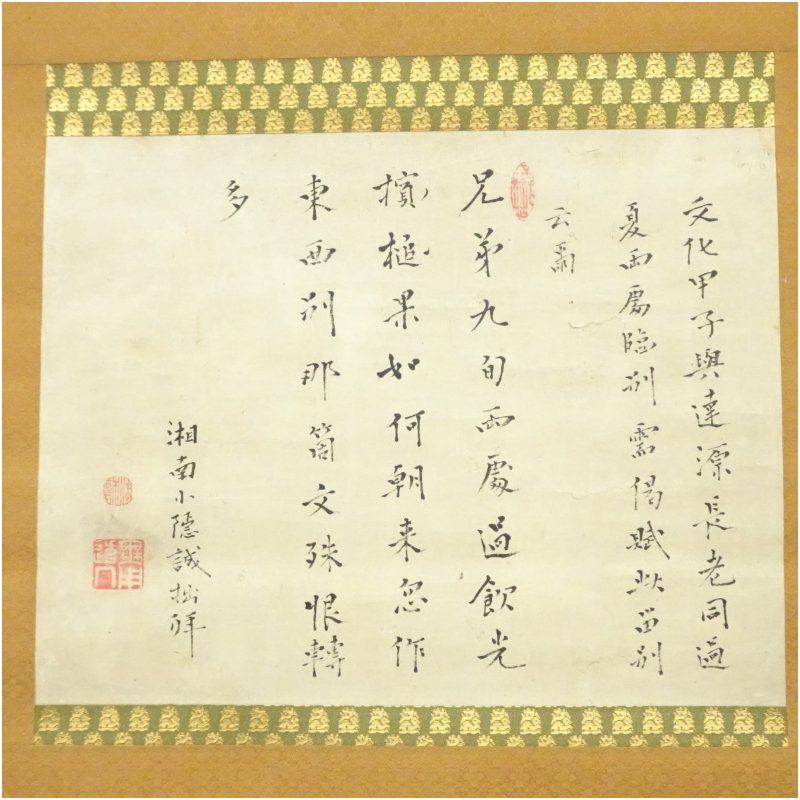 文化甲子與達源長老同過
夏両處臨別需偈賦此留別
云爾
兄弟九旬両處過飲光
擯槌果如何朝来忽作
東西別那箇文殊恨轉
多
湘南小隠誠拙拜